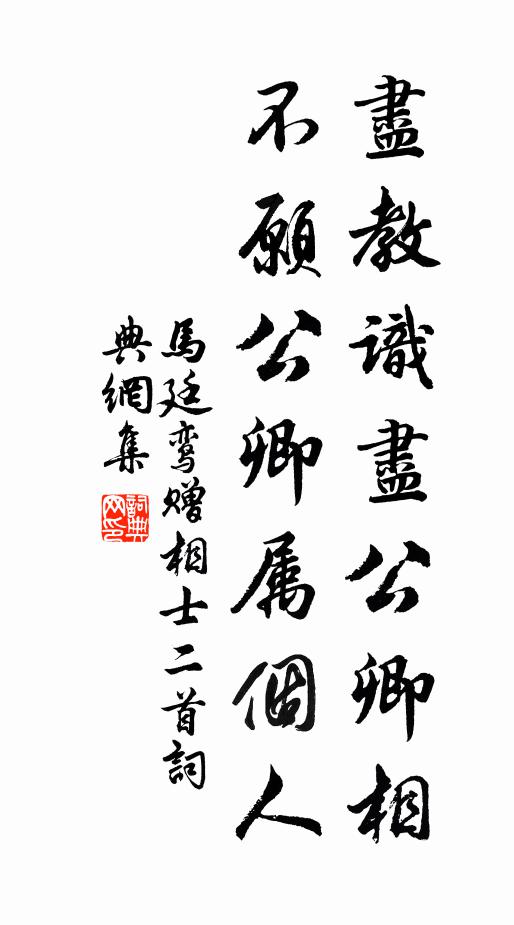 盡教識盡公卿相
不願公卿属個人
馬廷鸞赠相士二首詞
典網集
詞典网印